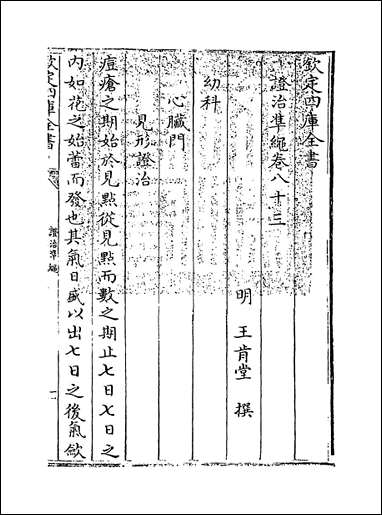 欽定四庫全書
證治準繩卷八十三
明 王肯堂 撰
幼科
心臟門
見形證治
痘瘡之期始於見點從見點而數之期止七日七日之
内如花之始蕾而發也其氣日盛以出七日之後氣斂
欽定四庫全書
證治準繩
一